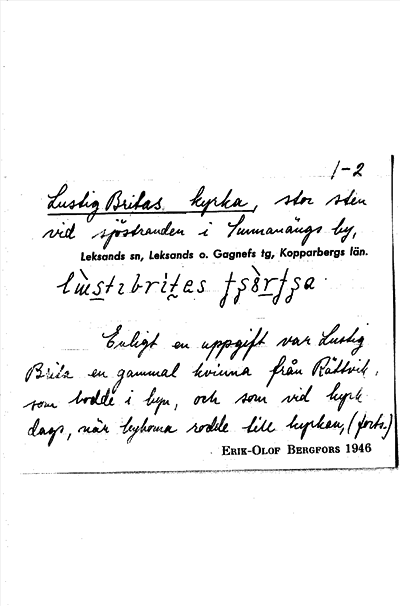 1-2
Lustig Britas kyrka, stor sten
vid sjöstranden i Sunnanängs by,
Leksands sn, Leksands o. Gagnefs tg, Kopparbergs län.
Enligt en uppgift var Lustig
Brita en gammal kvinna från Rättvik,
som bodde i byn, och som vid kyrk-
dags, när byborna rodde till kyrkan, (forts.)
ERIK-OLOF BERGFORS 1946